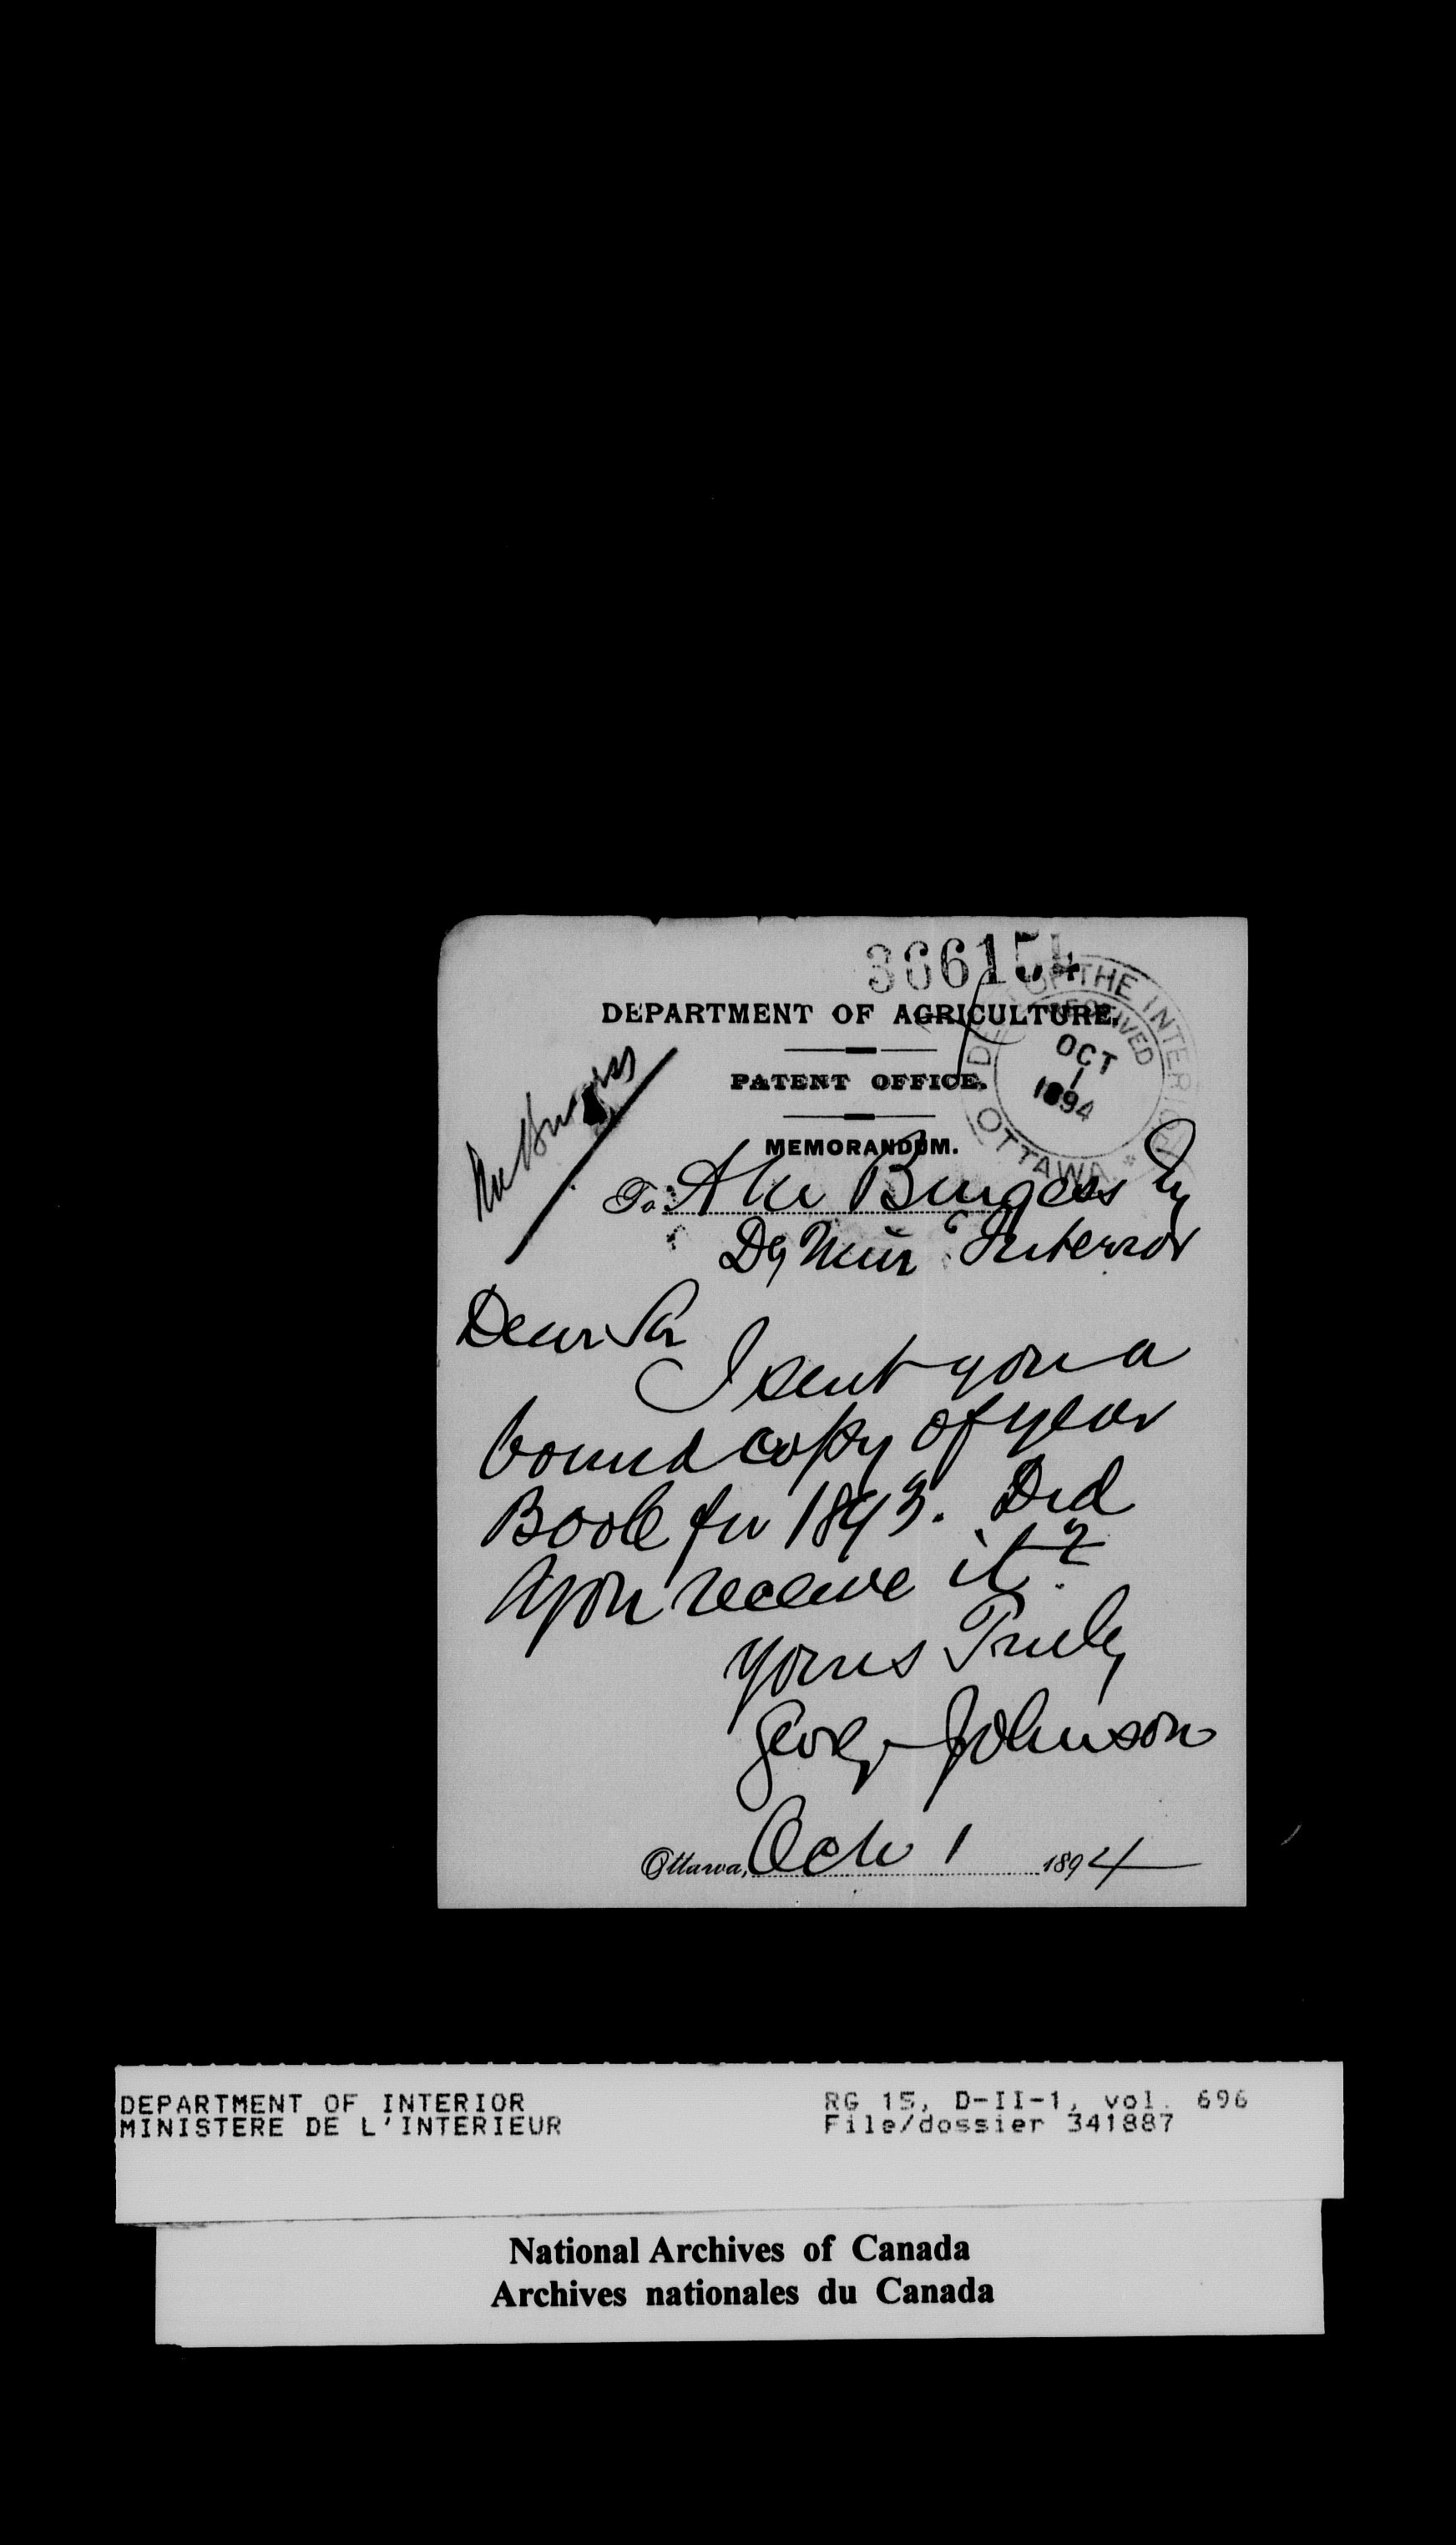 366154
DEPARTMENT OF AGRICULTURE.
DEPT OF THE INTERIOR
RECEIVED
OCT
1
1894
OTTAWA
PATENT OFFICE.
MEMORANDUM.
Mr Burgess
To A M Burgess Esq
Dy Min Interior
Dear Sir
I sent you a
bound copy of year
Book for 1893. Did
you receive it?
Yours Truly
George Johnson
Ottawa, Oct 1 1894
DEPARTMENT OF INTERIOR
MINISTERE DE L'INTERIEUR
RG 15, D-II-1, vol. 696
File/dossier 341887
National Archives of Canada
Archives nationales du Canada